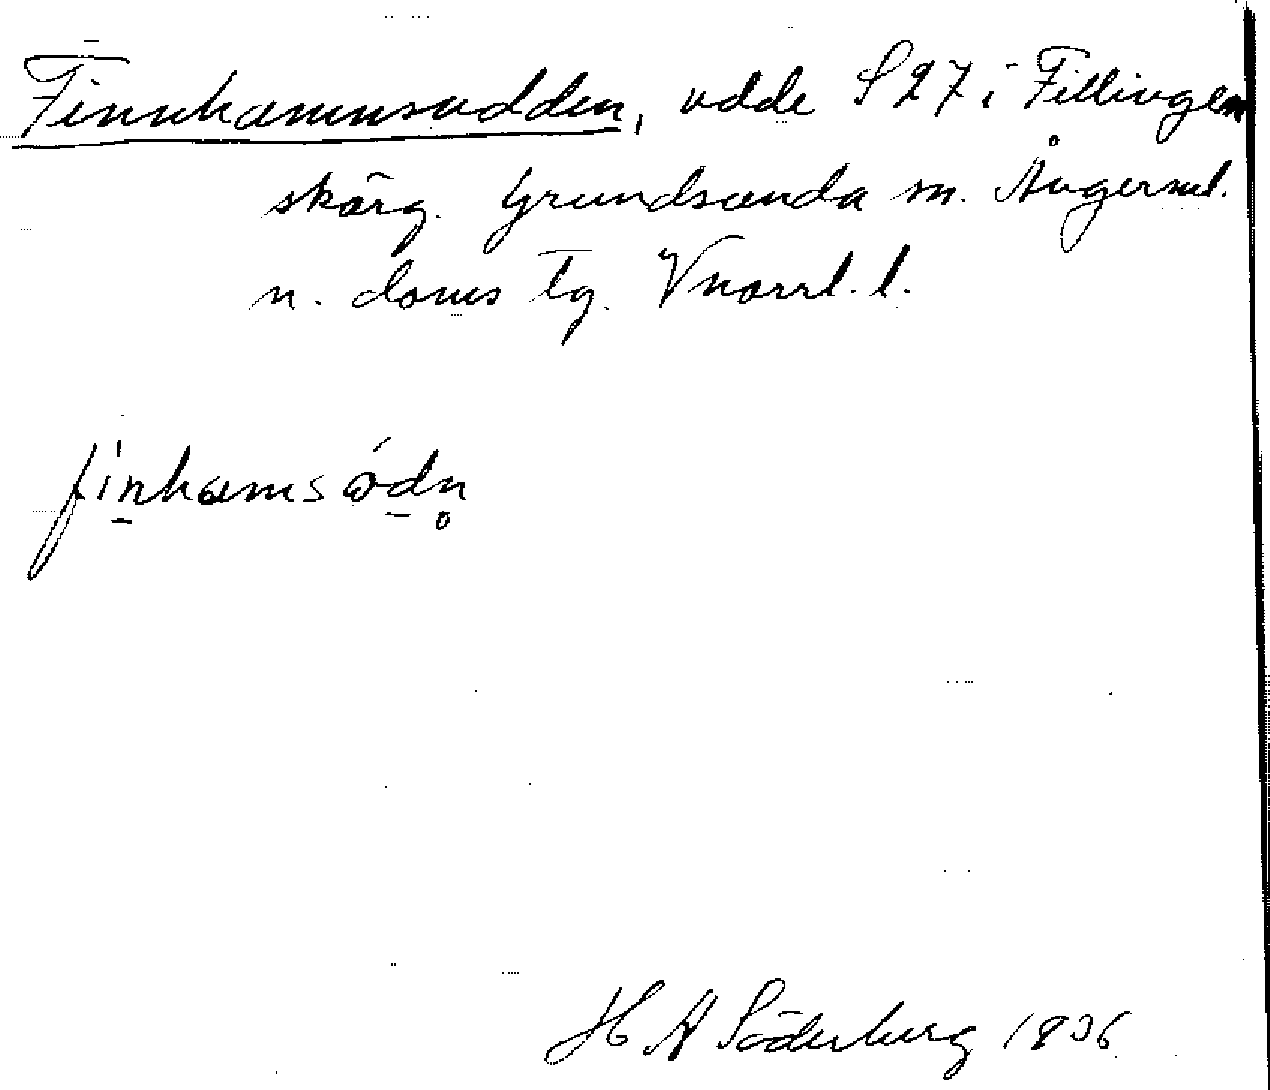 Finnhamnsudden, udde S 27 i Fillingen
skärg. Grundsunda sn. Ångerml.
n. doms tg. Vnorrl. l.
finhamsòdn
H A Söderberg 1936